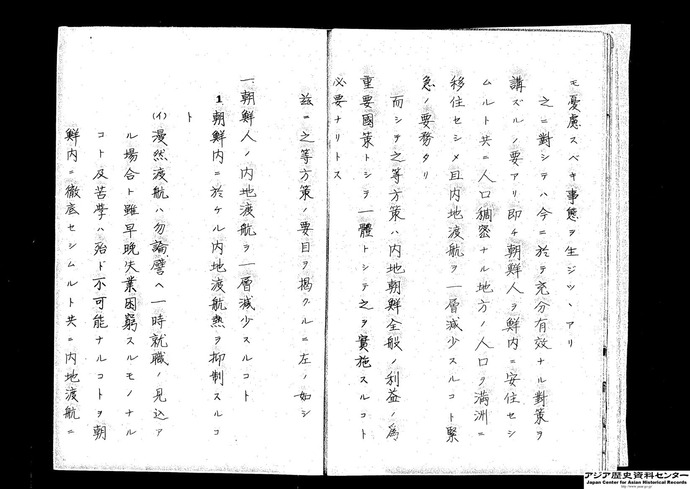 モ憂慮スベキ事態ヲ生ジツヽアリ
之ニ對シテハ今ニ於テ充分有效ナル對策ヲ
講ズルノ要アリ即チ朝鮮人ヲ鮮内ニ安住セシ
ムルト共ニ人口稠密ナル地方ノ人口ヲ滿洲ニ
移住セシメ且内地渡航ヲ一層減少スルコト緊
急ノ要務タリ
而シテ之等方策ハ内地朝鮮全般ノ利益ノ為
重要國策トシテ一體トシテ之ヲ實施スルコト
必要ナリトス
茲ニ之等方策ノ要目ヲ揭グルニ左ノ如シ
一、朝鮮人ノ内地渡航ヲ一層減少スルコト
1 朝鮮内ニ於ケル内地渡航熱ヲ抑制スルコ
ト
(イ) 漫然渡航ハ勿論譬ヘ一時就職ノ見込ア
ル場合ト雖早晩失業困窮スルモノナル
コト及苦學ハ殆ド不可能ナルコトヲ朝
鮮内ニ徹底セシムルト共ニ内地渡航ニ
アジア歴史資料センター
Japan Center for Asian Historical Records
http://www.jacar.go.jp/